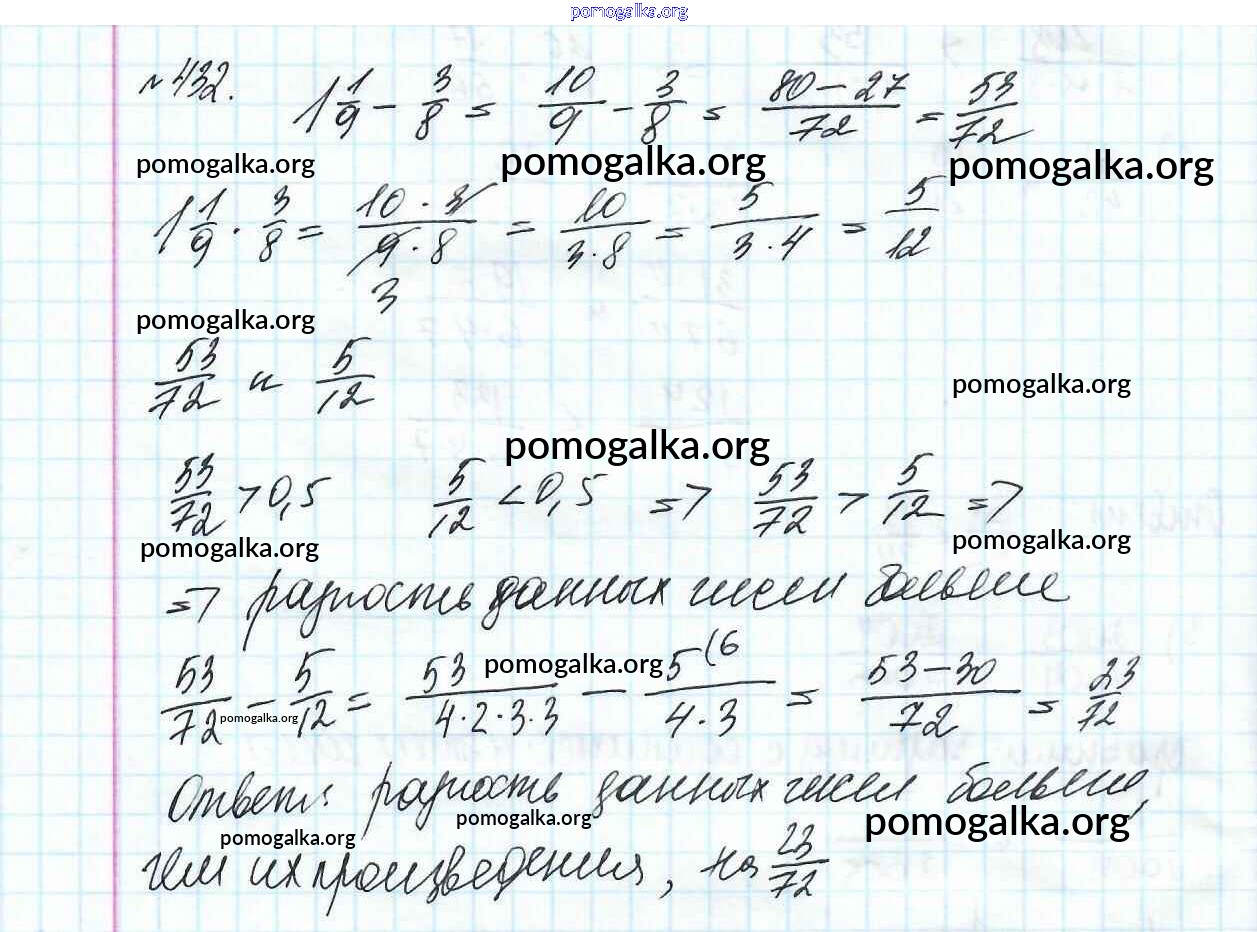 pomogalka.org
№432. 1 1/9 - 3/8 = 10/9 - 3/8 = (80-27)/72 = 53/72
pomogalka.org pomogalka.org pomogalka.org
1 1/9 · 3/8 = (10·3)/(9·8) = 10/(3·8) = 5/(3·4) = 5/12
3
pomogalka.org
53/72 и 5/12
pomogalka.org
pomogalka.org
53/72 > 0,5 5/12 < 0,5 => 53/72 > 5/12 =>
pomogalka.org pomogalka.org
=> разность данных чисел больше
53/72 - 5/12 = 53/(4·2·3·3) - 5(6/(4·3) = (53-30)/72 = 23/72
pomogalka.org
pomogalka.org
Ответ: разность данных чисел больше,
pomogalka.org pomogalka.org pomogalka.org
чем их произведения, на 23/72